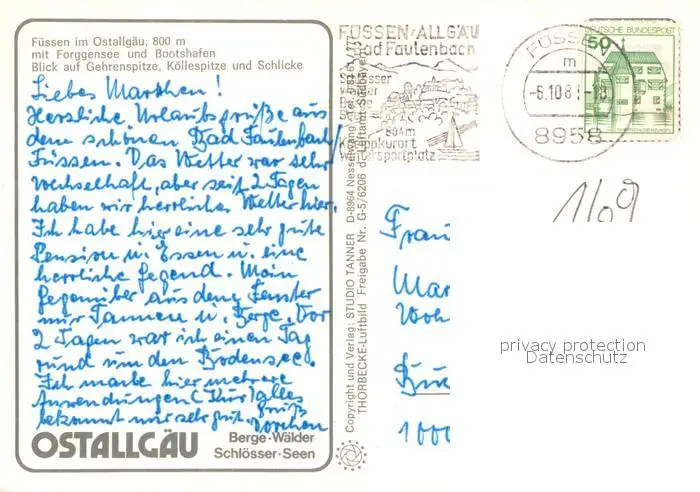 Füssen im Ostallgäu, 800 m
mit Forggensee und Bootshafen
Blick auf Gehrenspitze, Köllespitze und Schlicke
Liebes Marthen!
Herzliche Urlaubsgrüße aus
dem schönen Bad Faulenbach/
Füssen. Das Wetter war sehr
wechselhaft, aber seit 2 Tagen
haben wir herrliches Wetter hier.
Ich habe hier eine sehr gute
Pension u. Essen u. eine
herrliche Gegend. Mein
Gegenüber aus dem Fenster
nur Tannen u. Berge. Vor
2 Tagen war ich einen Tag
rund um den Bodensee.
Ich mache hier mehrere
Anwendungen (Kur) alles
bekommt mir sehr gut. Gruß
OSTALLGÄU
Berge·Wälder
Schlösser·Seen
Copyright und Verlag: STUDIO TANNER D-8964 Nesselwang
THORBECKE-Luftbild Freigabe Nr. G-5/6206
FÜSSEN/ALLGÄU
Bad Faulenbach
804m
Kneippkurort
Wintersportplatz
FÜSSEN
m
-6.10.8
8958
50
DEUTSCHE BUNDESPOST
1/09
Frau
Mar
Woh
1000
privacy protection
Datenschutz